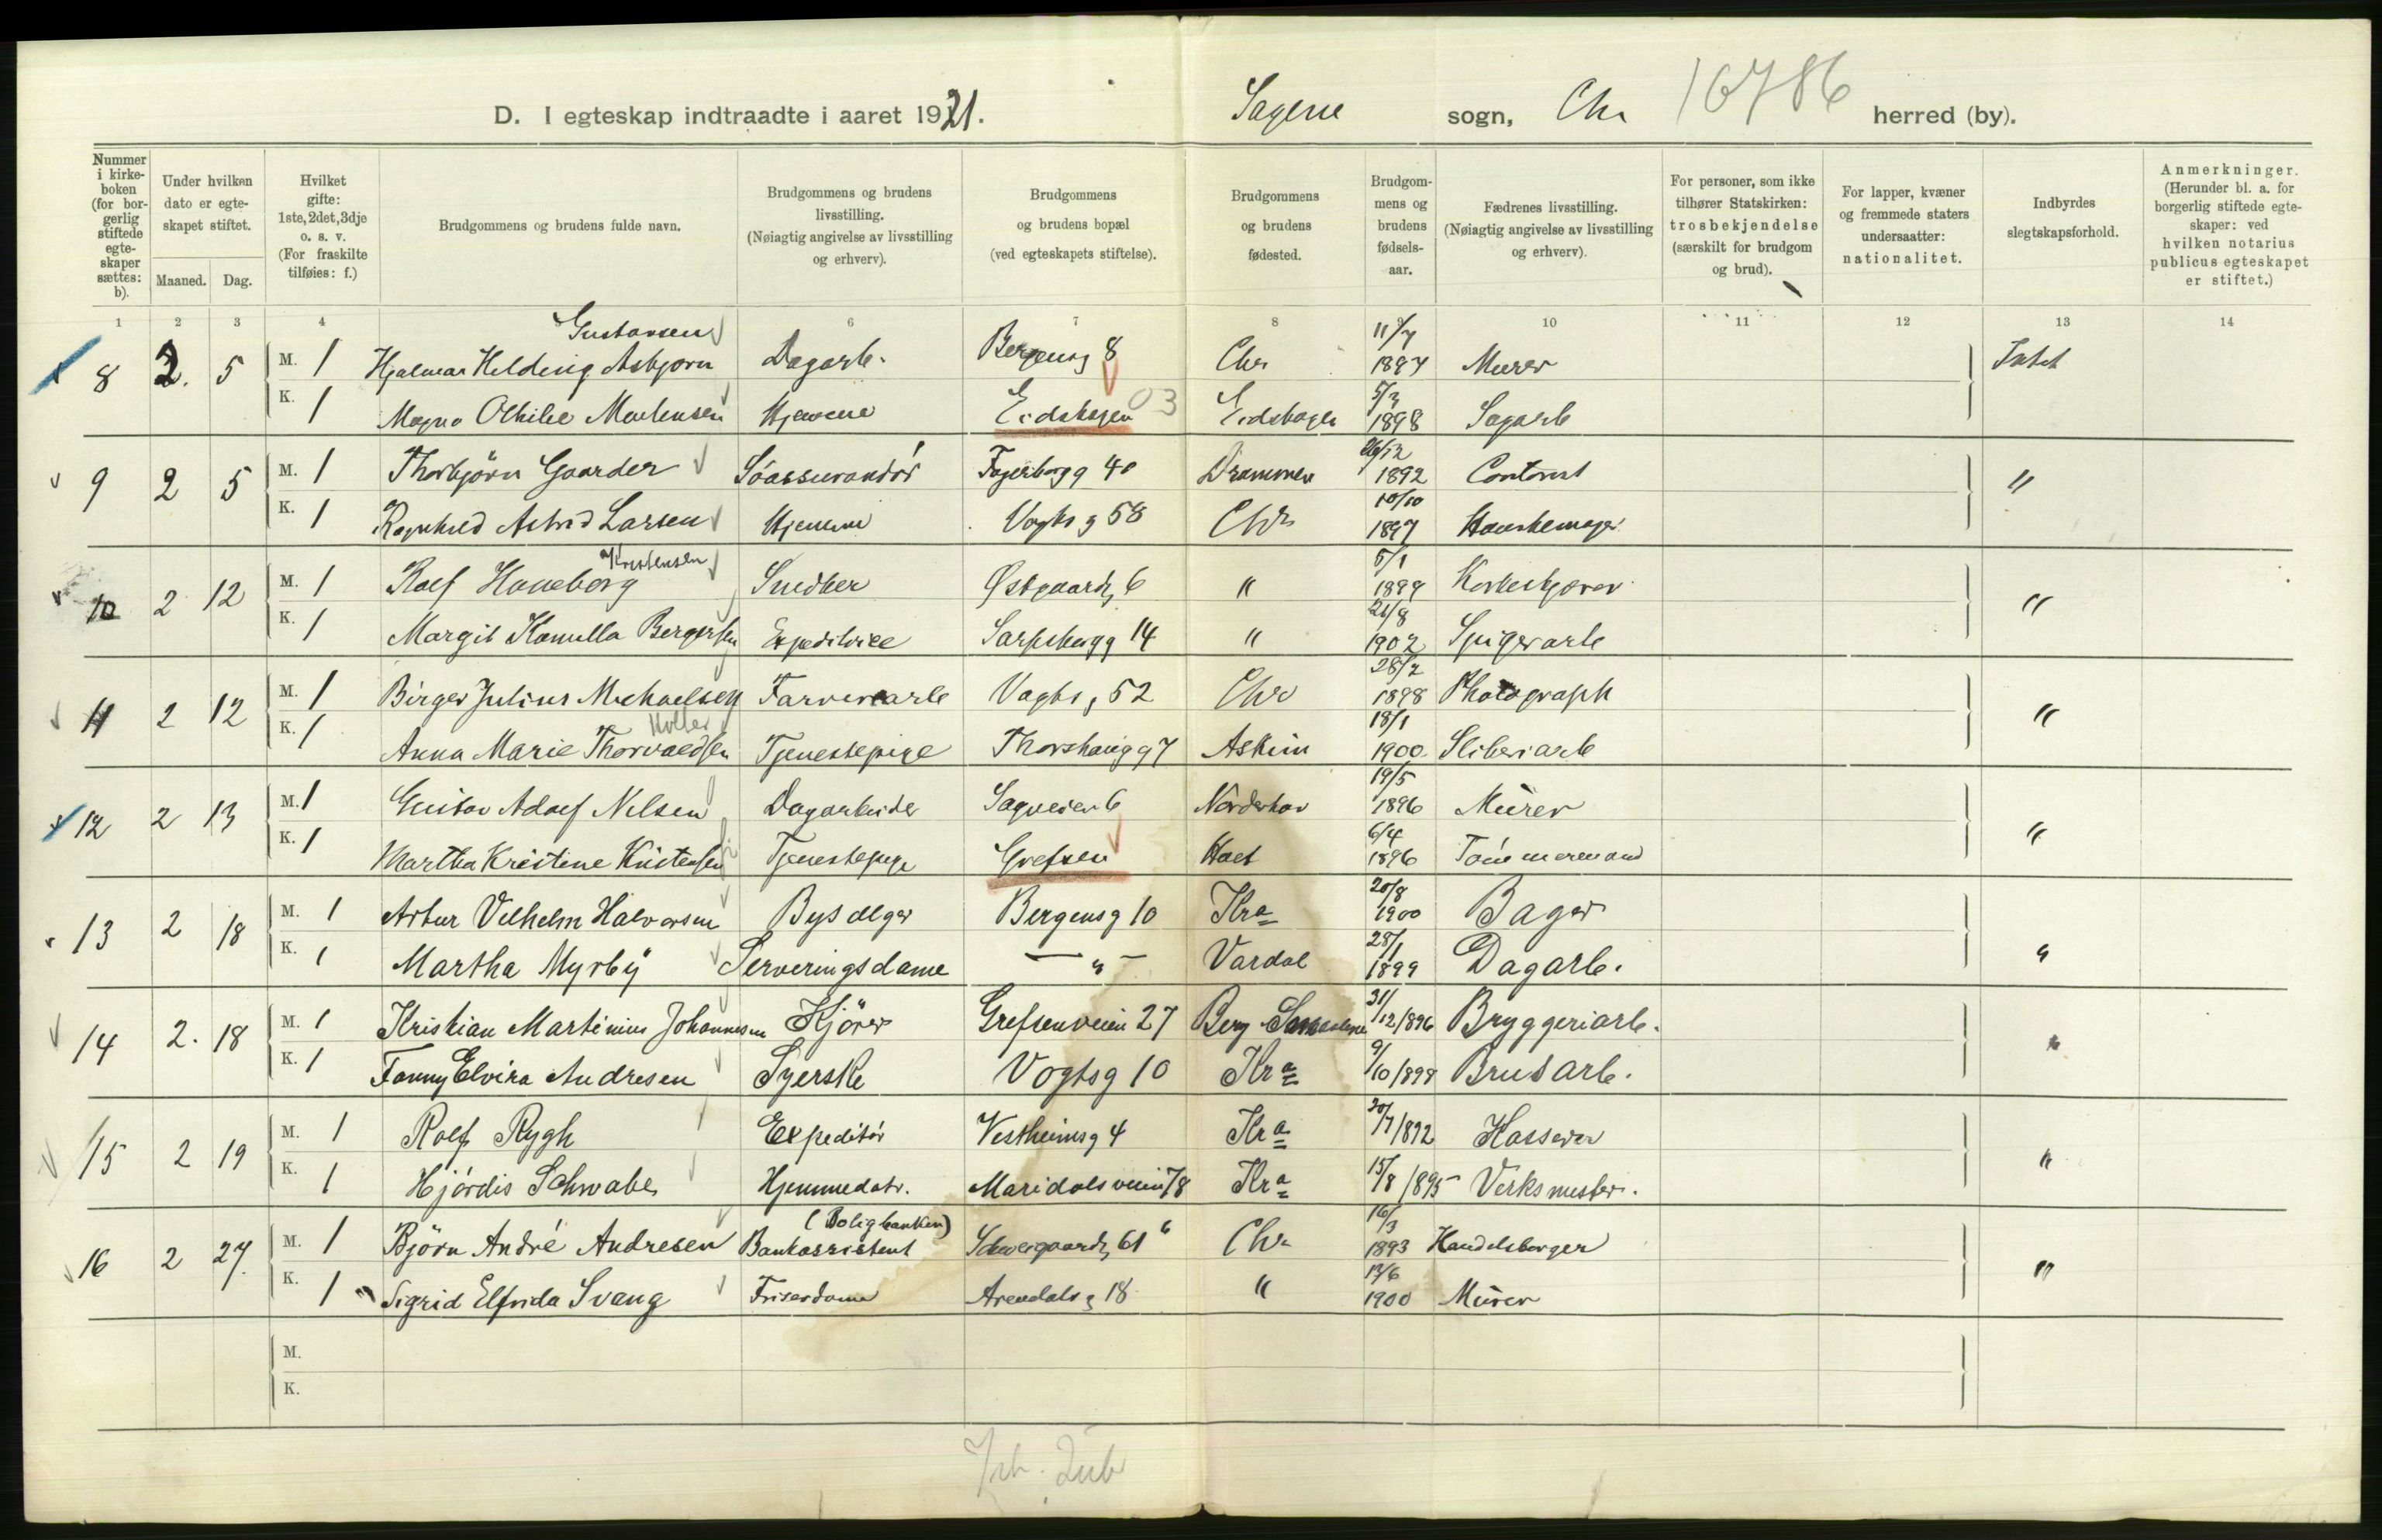 D. I egteskap indtraadte i aaret 1921. Sagene sogn, Chr 16786 herred (by).
Nummer i kirke-boken (for bor-gerlig stiftede egte-skaper sættes: b).
Under hvilken dato er egte-skapet stiftet.
Maaned. Dag.
Hvilket gifte: 1ste, 2det, 3dje o. s. v. (For fraskilte tilføies: f.)
Brudgommens og brudens fulde navn.
Brudgommens og brudens livsstilling. (Nøiagtig angivelse av livsstilling og erhverv).
Brudgommens og brudens bopæl (ved egteskapets stiftelse).
Brudgommens og brudens fødested.
Brudgom-mens og brudens fødsels-aar.
Fædrenes livsstilling. (Nøiagtig angivelse av livsstilling og erhverv).
For personer, som ikke tilhører Statskirken: trosbekjendelse (særskilt for brudgom og brud).
For lapper, kvæner og fremmede staters undersaatter: nationalitet.
Indbyrdes slegtskapsforhold.
Anmerkninger. (Herunder bl. a. for borgerlig stiftede egte-skaper: ved hvilken notarius publicus egteskapet er stiftet.)
1 2 3 4 6 7 8 9 10 11 12 13 14
Gustavsen
8 2. 5 M. 1 Hjalmar Helding Asbjørn Dagarb. Bergensg 8 Chr 11/7 1897 Murer Intet
K. 1 Magna Othilie Mortensen Hjemme Eidskogen 03 Eidskogen 5/3 1898 Sagarb
9 2 5 M. 1 Thorbjörn Gaarder Söassurandör Fagerborgg 40 Drammen 26/12 1892 Contorist "
K. 1 Ragnhild Astrid Larsen Hjemme Vogts g 58 Chr 10/10 1897 Hanskemager
Kristensen
10 2 12 M. 1 Rolf Haneborg Snedker Østgaards, 6 " 5/1 1899 Korkeskjærer "
K. 1 Margit Kamilla Bergersen Expeditrice Sarpsborgg 14 " 21/8 1902 Spigerarb
11 2 12 M. 1 Birger Julius Michaelsen Farveriarb Vogts, 52 Chr 28/7 1898 Photograph "
Holler
K. 1 Anna Marie Thorvaldsen Tjenestepige Thorshaugg 7 Askim 18/1 1900 Sliberiarb
12 2 13 M. 1 Gustav Adolf Nilsen Dagarbeider Sagveien 6 Norderhov 19/5 1896 Murer "
K. 1 Martha Kristine Kristensen Tjenestepige Grefsen Hoel 6/4 1896 Tömmermand
13 2 18 M. 1 Artur Vilhelm Halvorsen Byselger Bergensg 10 Kra 20/8 1900 Bager "
K. 1 Martha Myrby Serveringsdame — " — Vardal 28/1 1899 Dagarb.
14 2. 18 M. 1 Kristian Martinius Johannesen Kjörer Grefsenveien 27 Berg 31/12/896 Bryggeriarb. "
K. 1 Fanny Elvira Andresen Syerske Vogtsg 10 Kra 9/10/898 Brusarb.
15 2 19 M. 1 Rolf Rygh Expeditör Vestheimsg 4 Kra 20/7/892 Kasserer "
K. 1 Hjördis Schwabe Hjemmedatr. Maridalsveien 78 Kra 15/8/895 Verksmester.
(Boligbanken)
16 2 27. M. 1 Björn André Andresen Bankassistent Schweigaards, 61 b Chr 16/3 1893 Handelsborger "
K. 1 Sigrid Elfrida Svang Friserdame Arendals g 18 " 13/6 1900 Murer
M.
K.